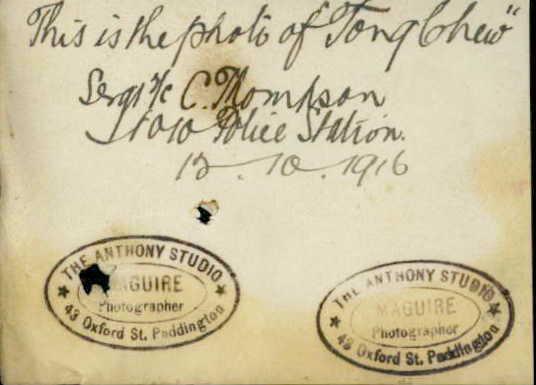 This is the photo of Tong Chew"
Sergt i/c C. Thompson
Police Station.
12.10.1916
THE ANTHONY STUDIO
MAGUIRE
Photographer
43 Oxford St. Paddington
THE ANTHONY STUDIO
MAGUIRE
Photographer
43 Oxford St. Paddington